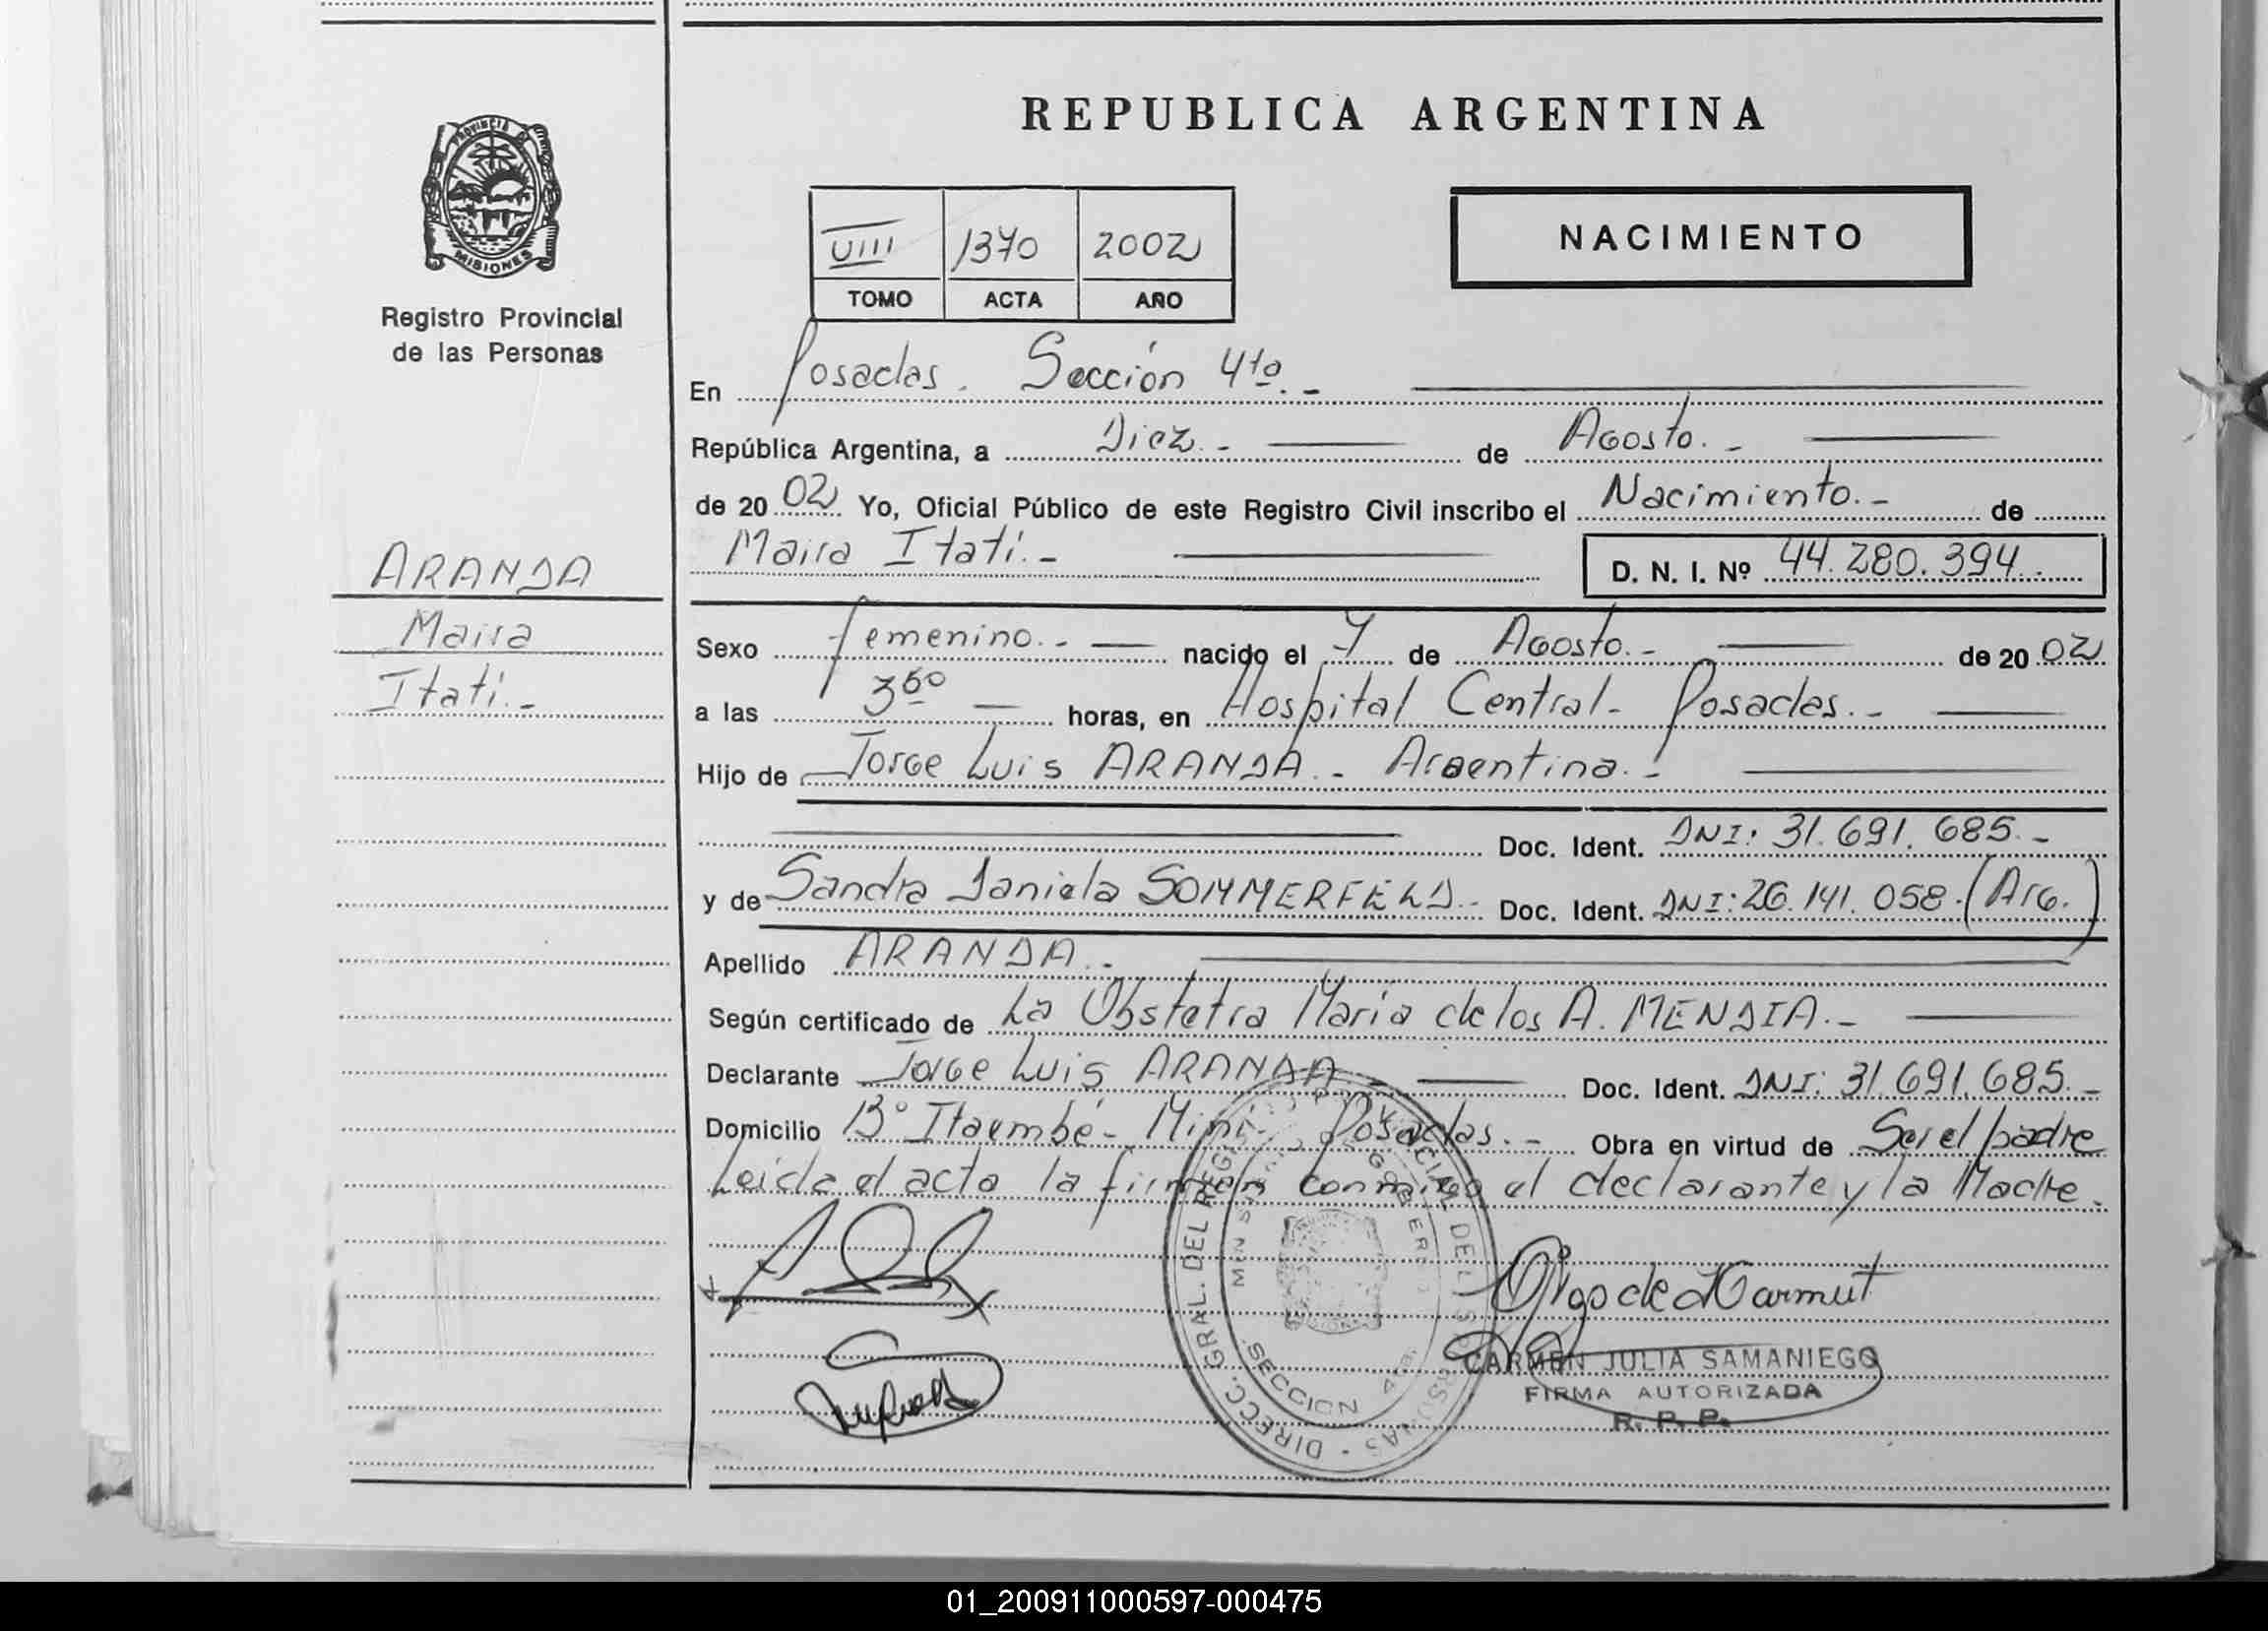 REPUBLICA ARGENTINA
PROVINCIA DE
MISIONES
Registro Provincial
de las Personas
VIII 1370 2002
TOMO ACTA AÑO
NACIMIENTO
En Posadas. Sección 4ta.-
República Argentina, a Diez.- de Agosto.-
de 2002 Yo, Oficial Público de este Registro Civil inscribo el Nacimiento.- de
Maira Itatí.- D. N. I. Nº 44.280.394.
ARANDA
Maira
Itatí.-
Sexo femenino.- nacido el 7 de Agosto.- de 2002
a las 3⁵⁰ horas, en Hospital Central- Posadas.-
Hijo de Jorge Luis ARANDA.- Argentina.-
Doc. Ident. DNI: 31.691.685.-
y de Sandra Daniela SOMMERFELD.- Doc. Ident. DNI: 26.141.058.(Arg.)
Apellido ARANDA.-
Según certificado de La Obstetra María de los A. MENDIA.-
Declarante Jorge Luis ARANDA.- Doc. Ident. DNI: 31.691.685.-
Domicilio B° Itaembé- Miní- Posadas.- Obra en virtud de Ser el padre
Leída el acta la firman conmigo el declarante y la Madre.
DIRECC. GRAL. DEL REGISTRO PROVINCIAL DE LAS PERSONAS
SECCION 4ta.
CARMEN JULIA SAMANIEGO
FIRMA AUTORIZADA
R. P. P.
01_200911000597-000475